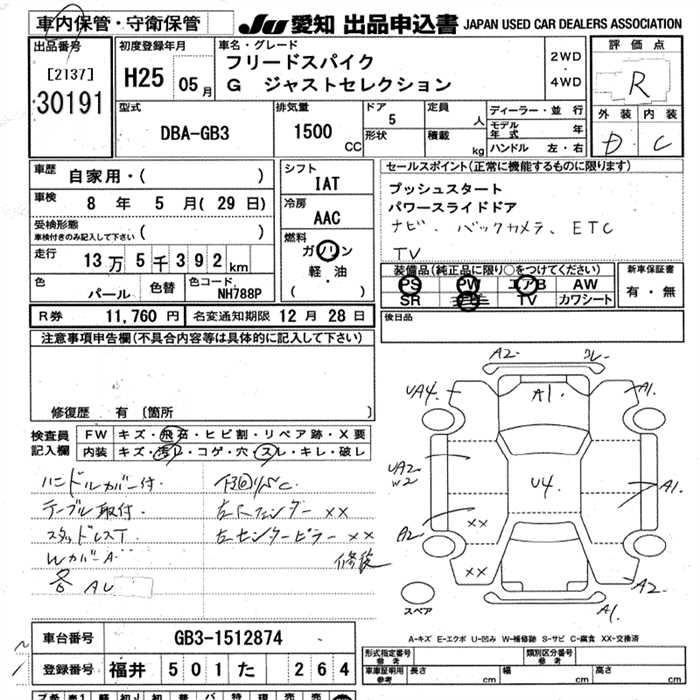 車内保管・守衛保管
JU 愛知 出品申込書 JAPAN USED CAR DEALERS ASSOCIATION
出品番号
[2137]
30191
初度登録年月
H25 05月
車名・グレード
フリードスパイク
G ジャストセレクション
2WD
・
4WD
評価点
R
外装 内装
D C
型式
DBA-GB3
排気量
1500 CC
ドア
5
形状
定員
人
積載
kg
ディーラー・並行
モデル年式 年
ハンドル 左・右
車歴
自家用・( )
車検
8 年 5 月( 29 日)
受検形態
車検付きのみ記入して下さい ( )
走行
13万5千392km
色
パール
色替
色コード
NH788P
シフト
IAT
冷房
AAC
燃料
ガソリン
軽・油
( )
セールスポイント(正常に機能するものに限ります)
プッシュスタート
パワースライドドア
ナビ、バックカメラ、ETC
TV
装備品(純正品に限り○をつけてください)
PS PW エアB AW
SR TV カワシート
新車保証書
有・無
R券 11,760 円 名変通知期限 12 月 28 日
後日品
注意事項申告欄(不具合内容等は具体的に記入して下さい)
修復歴 有 [箇所
検査員
記入欄
FW キズ・飛石・ヒビ割・リペア跡・X要
内装 キズ・汚レ・コゲ・穴・スレ・キレ・破レ
ハンドルカバー付.
テーブル取付.
スタッドレスT
WカバーA
各 AU
左Fフェンダー XX
左センターピラー XX
修複
A2 クレ
UA4 A1 A1
UA2
W2
U4
A1
XX
A2
XX
A2
A1
スペア
A-キズ E-エクボ U-凹み W-補修跡 S-サビ C-腐食 XX-交換済
車台番号 GB3-1512874
登録番号 福井 501 た 264
型式指定番号
参考
類別区分番号
参考
車庫証明用
参考
長さ cm 幅 cm 高さ cm